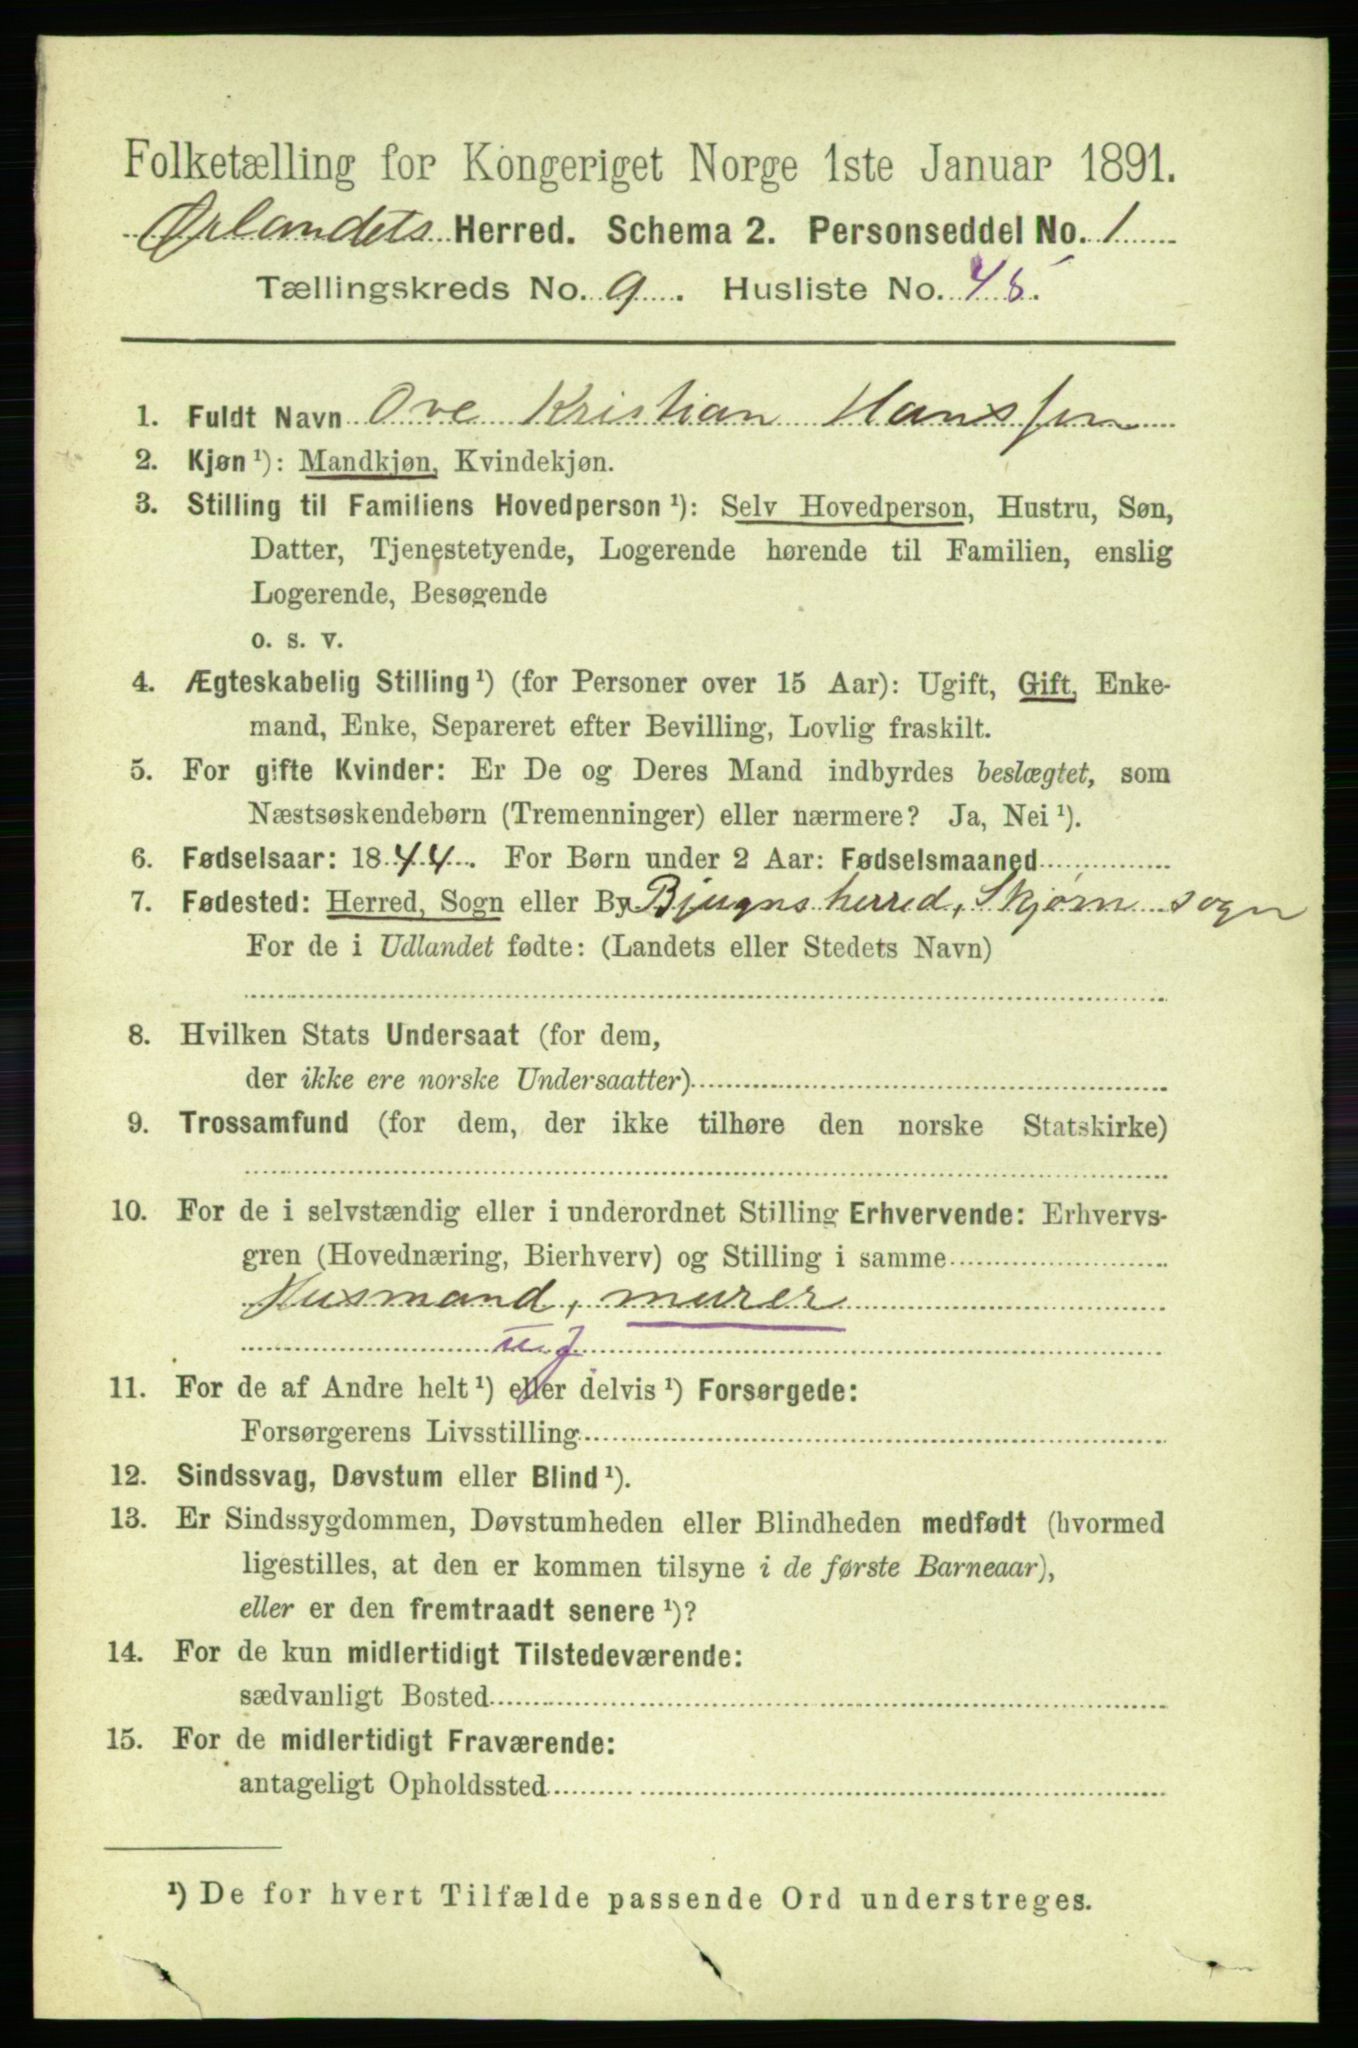 Folketælling for Kongeriget Norge 1ste Januar 1891.
Ørlandets Herred. Schema 2. Personseddel No. 1
Tællingskreds No. 9. Husliste No. 45.
1. Fuldt Navn Ove Kristian Hanssen
2. Kjøn ¹): Mandkjøn, Kvindekjøn.
3. Stilling til Familiens Hovedperson ¹): Selv Hovedperson, Hustru, Søn,
Datter, Tjenestetyende, Logerende hørende til Familien, enslig
Logerende, Besøgende
o. s. v.
4. Ægteskabelig Stilling ¹) (for Personer over 15 Aar): Ugift, Gift, Enke-
mand, Enke, Separeret efter Bevilling, Lovlig fraskilt.
5. For gifte Kvinder: Er De og Deres Mand indbyrdes beslægtet, som
Næstsøskendebørn (Tremenninger) eller nærmere? Ja, Nei ¹).
6. Fødselsaar: 1844. For Børn under 2 Aar: Fødselsmaaned
7. Fødested: Herred, Sogn eller By Bjugns herred, Skjørn sogn
For de i Udlandet fødte: (Landets eller Stedets Navn)
8. Hvilken Stats Undersaat (for dem,
der ikke ere norske Undersaatter)
9. Trossamfund (for dem, der ikke tilhøre den norske Statskirke)
10. For de i selvstændig eller i underordnet Stilling Erhvervende: Erhvervs-
gren (Hovednæring, Bierhverv) og Stilling i samme
Husmand, murer
11. For de af Andre helt ¹) eller delvis ¹) Forsørgede:
Forsørgerens Livsstilling
12. Sindssvag, Døvstum eller Blind ¹).
13. Er Sindssygdommen, Døvstumheden eller Blindheden medfødt (hvormed
ligestilles, at den er kommen tilsyne i de første Barneaar),
eller er den fremtraadt senere ¹)?
14. For de kun midlertidigt Tilstedeværende:
sædvanligt Bosted
15. For de midlertidigt Fraværende:
antageligt Opholdssted
¹) De for hvert Tilfælde passende Ord understreges.